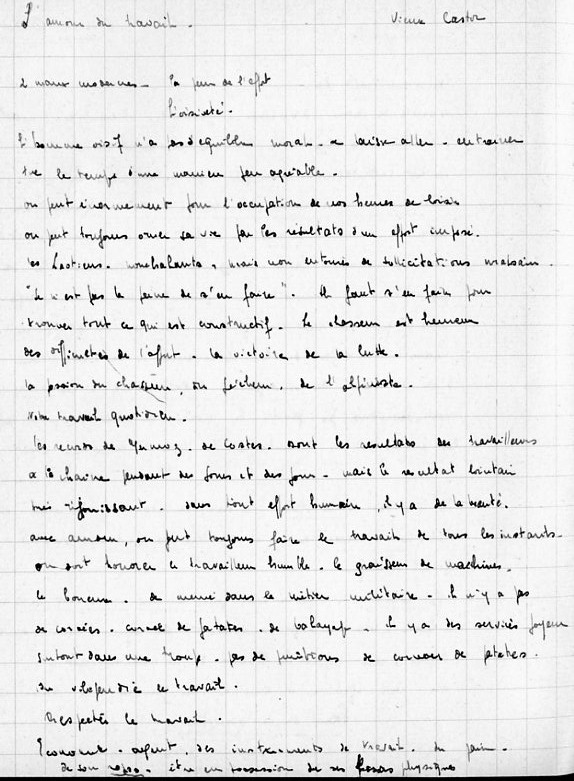 L'amour du travail. Vieux Castor
2 maux modernes - la peur de l'effort
l'oisiveté.
L'homme oisif n'a pas d'équilibre moral - laisse aller -
tue le temps d'une manière peu agréable.
on peut énormément pour l'occupation de nos heures de loisir
on peut toujours orner sa vie par les résultats d'un effort imposé.
les Laotiens. nonchalants, mais non entourés de sollicitations malsain.
"Ce n'est pas la peine de s'en faire". Il faut s'en faire pour
trouver tout ce qui est constructif. Le chasseur est heureux
des difficultés de l'affut. la victoire de la lutte.
la passion du chasseur, du pêcheur, de l'alpiniste.
Notre travail quotidien.
les records de Mermoz, de Costes, sont les résultats des travailleurs
à la chaine pendant des jours et des jours - mais le résultat lointain
très réjouissant. dans tout effort humain, il y a de la beauté.
avec amour, on peut toujours faire le travail de tous les instants.
on doit honorer le travailleur humble. le graisseur de machines.
le de même dans le métier militaire. il n'y a pas
de corvées. corvée de patates, de balayage. il y a des services joyeux
surtout dans une troupe. pas de punitions de corvées de patates.
vilipendié le travail.
Respectés le travail.
Economie. argent, des instruments de travail, du pain.
de son repos. être en possession de ses forces physiques